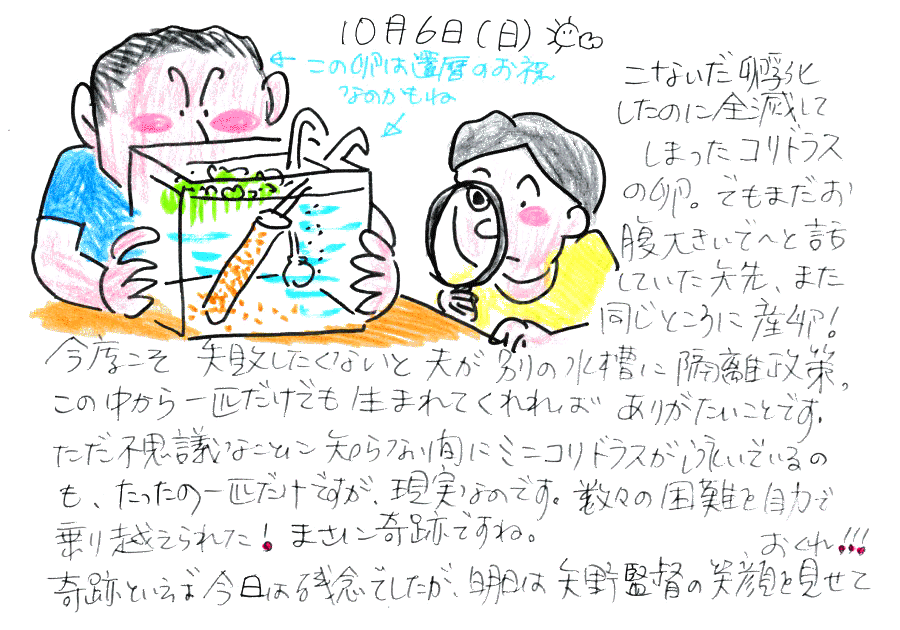 10月6日(日)
←この卵は還暦のお祝
なのかもね
こないだ孵化
したのに全滅して
しまったコリドラス
の卵。でもまだお
腹大きいでへと話
していた矢先、また
同じところに産卵!
今度こそ 失敗したくないと 夫が 別の水槽に 隔離政策。
この中から一匹だけでも 生まれてくれれば ありがたいことです。
ただ不思議なことに 知らない間にミニコリドラスが泳いでいるの
も、たったの一匹だけですが、現実なのです。数々の困難を自力で
乗り越えられた!まさに奇跡ですね。
奇跡といえば今日は残念でしたが、明日は 矢野監督の笑顔を見せて
おくれ!!!